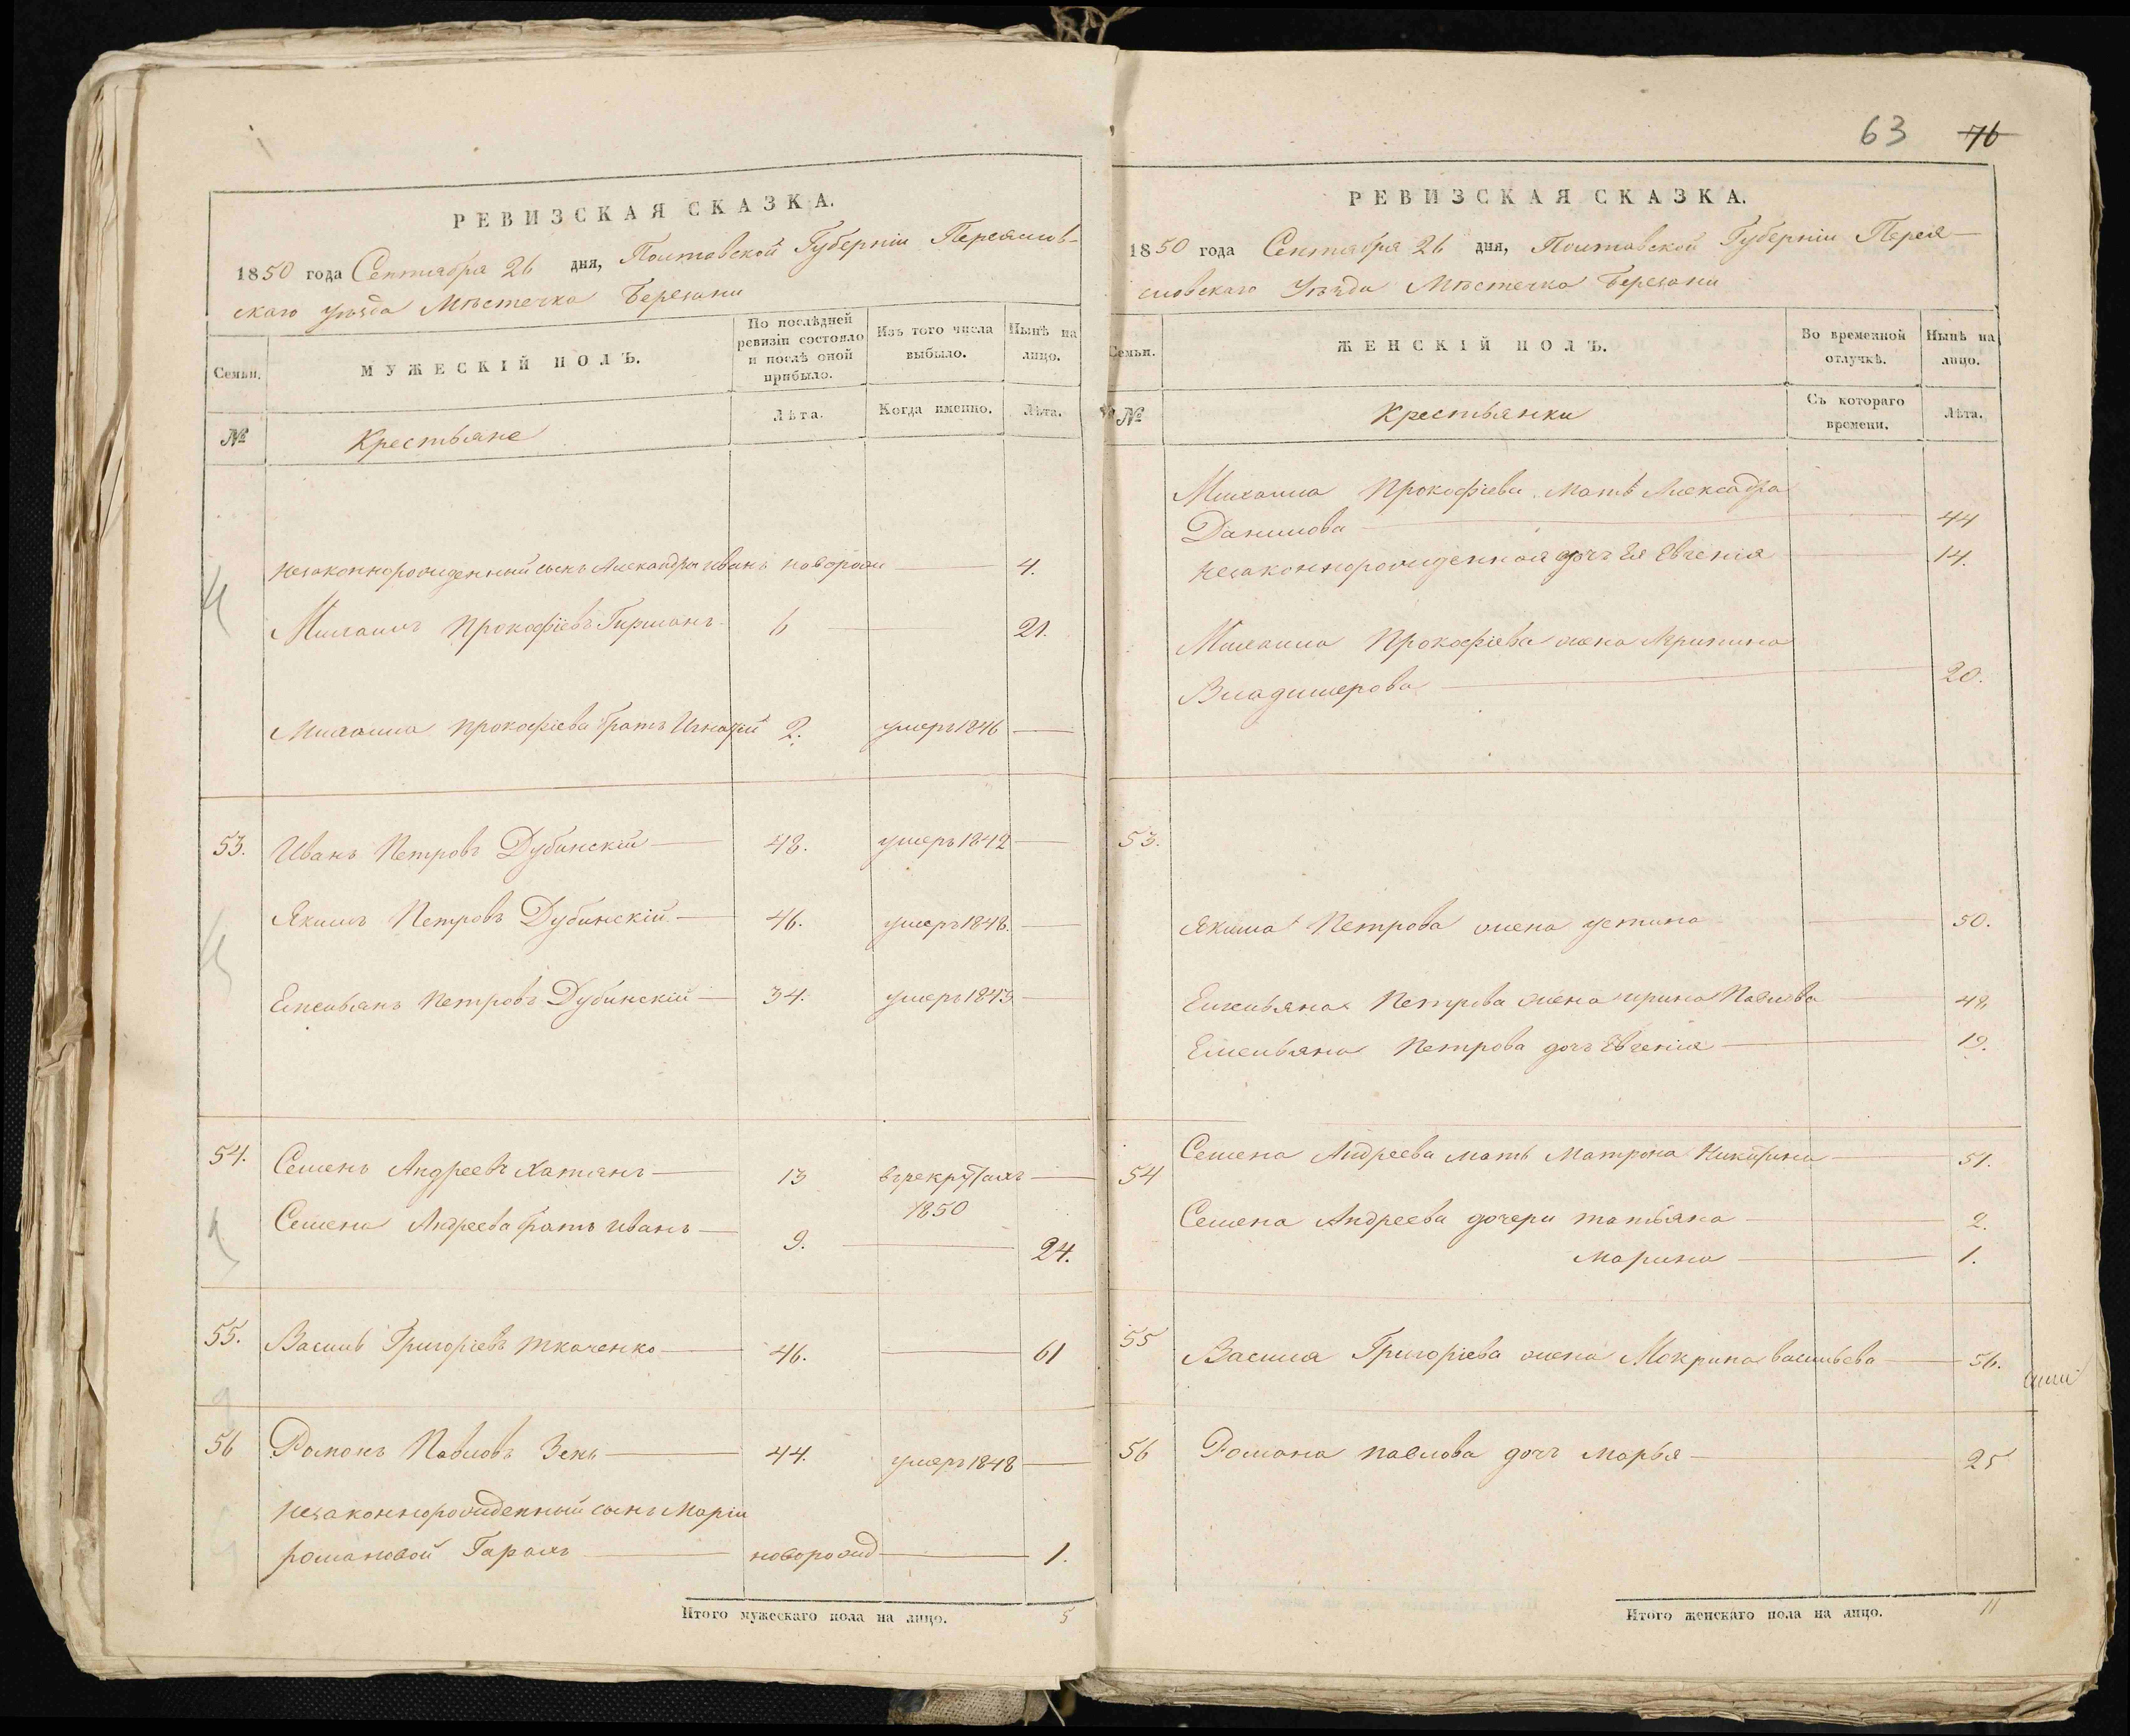 РЕВИЗСКАЯ СКАЗКА.
1850 года Сентября 26 дня, Полтавской Губерніи Переяслов-
скаго уѣзда Мѣстечка Березани
Семьи.
МУЖЕСКІЙ ПОЛЪ.
По послѣдней ревизіи состояло и послѣ оной прибыло.
Изъ того числа выбыло.
Нынѣ на лицо.
№
Крестьяне
Лѣта.
Когда именно.
Лѣта.
Незаконнорожденный сынъ Александры Иванъ новорож 4.
Михаилъ Прокофіевъ 6 21.
Михаила Прокофіева братъ Игнатій 2. умеръ 1846
53. Иванъ Петровъ Дубинскій 48. умеръ 1842
Якимъ Петровъ Дубинскій 46. умеръ 1848.
Емельянъ Петровъ Дубинскій 34. умеръ 1843
54. Семенъ Андреевъ 13 въ рекрутахъ
1850
Семена Андреева братъ Иванъ 9. 24.
55. Василь Григоріевъ Ткаченко 46. 61
56 Романъ Павловъ Зень 44. умеръ 1848
Незаконнорожденный сынъ Маріи
Романовой новорожд 1.
Итого мужескаго пола на лицо. 5
63 76
РЕВИЗСКАЯ СКАЗКА.
1850 года Сентября 26 дня, Полтавской Губерніи Перея-
словскаго Уѣзда Мѣстечка Березани
Семьи.
ЖЕНСКІЙ ПОЛЪ.
Во временной отлучкѣ.
Нынѣ на лицо.
№
Крестьянки
Съ котораго времени.
Лѣта.
Михаила Прокофіева мать Александра
Данилова 44
Незаконнорожденная дочь Ея Евгенія 14.
Михаила Прокофіева жена
Владимерова 20.
53.
Якима Петрова жена Устина 50.
Емельяна Петрова жена Ирина Павлова 48
Емельяна Петрова дочь Евгенія 19.
54 Семена Андреева мать Матрона Никитина 51.
Семена Андреева дочери Татьяна 2.
Марина 1.
55 Василя Григоріева жена Мокрина Васильева 56.
56 Романа Павлова дочь Марья 25
Итого женскаго пола на лицо. 11